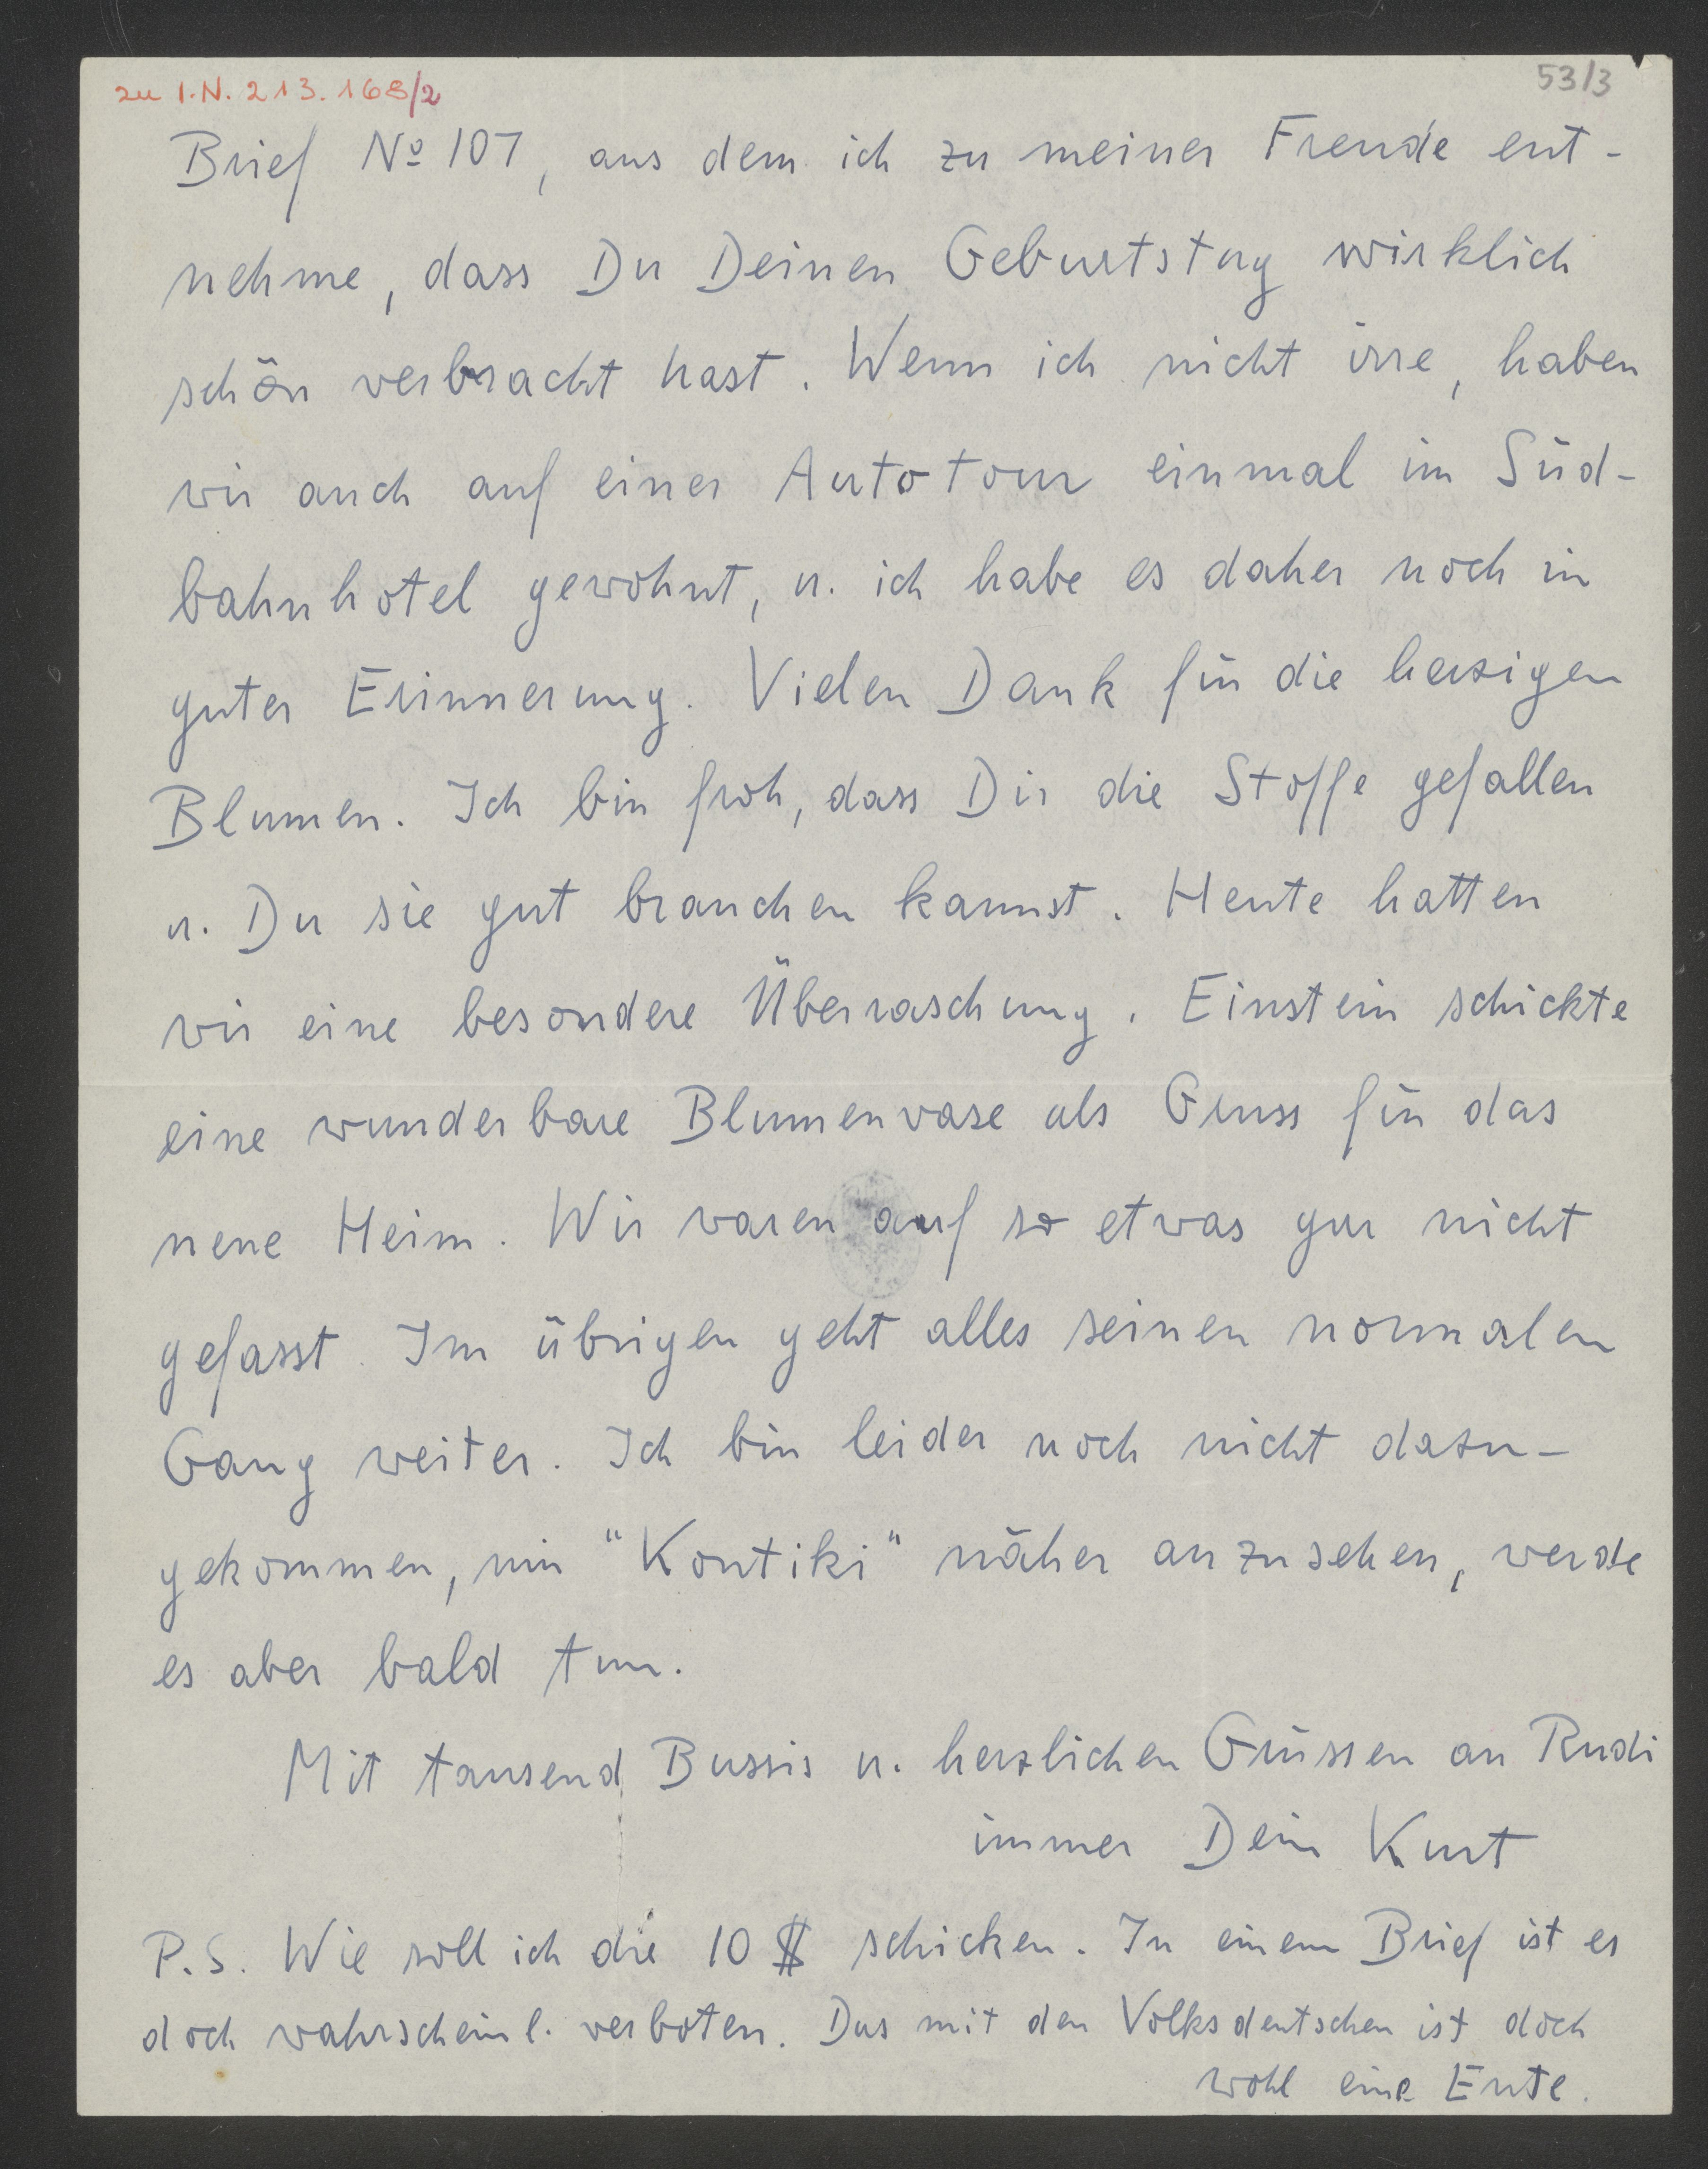 zu I.N. 213.168/2
53/3
Brief Nº 107, aus dem ich zu meiner Freude ent-
nehme, dass Du Deinen Geburtstag wirklich
schön verbracht hast. Wenn ich nicht irre, haben
wir auch auf einer Autotour einmal im Süd-
bahnhotel gewohnt, u. ich habe es daher noch in
guter Erinnerung. Vielen Dank für die herzigen
Blumen. Ich bin froh, dass Dir die Stoffe gefallen
u. Du sie gut brauchen kannst. Heute hatten
wir eine besondere Überraschung. Einstein schickte
eine wunderbare Blumenvase als Gruss für das
neue Heim. Wir waren auf so etwas gar nicht
gefasst. Im übrigen geht alles seinen normalen
Gang weiter. Ich bin leider noch nicht dazu-
gekommen, mir "Kontiki" näher anzusehen, werde
es aber bald tun.
Mit tausend Bussis u. herzlichen Grüssen an Rudi
immer Dein Kurt
P.S. Wie soll ich die 10 $ schicken. In einem Brief ist es
doch wahrscheinl. verboten. Das mit den Volksdeutschen ist doch
wohl eine Ente.